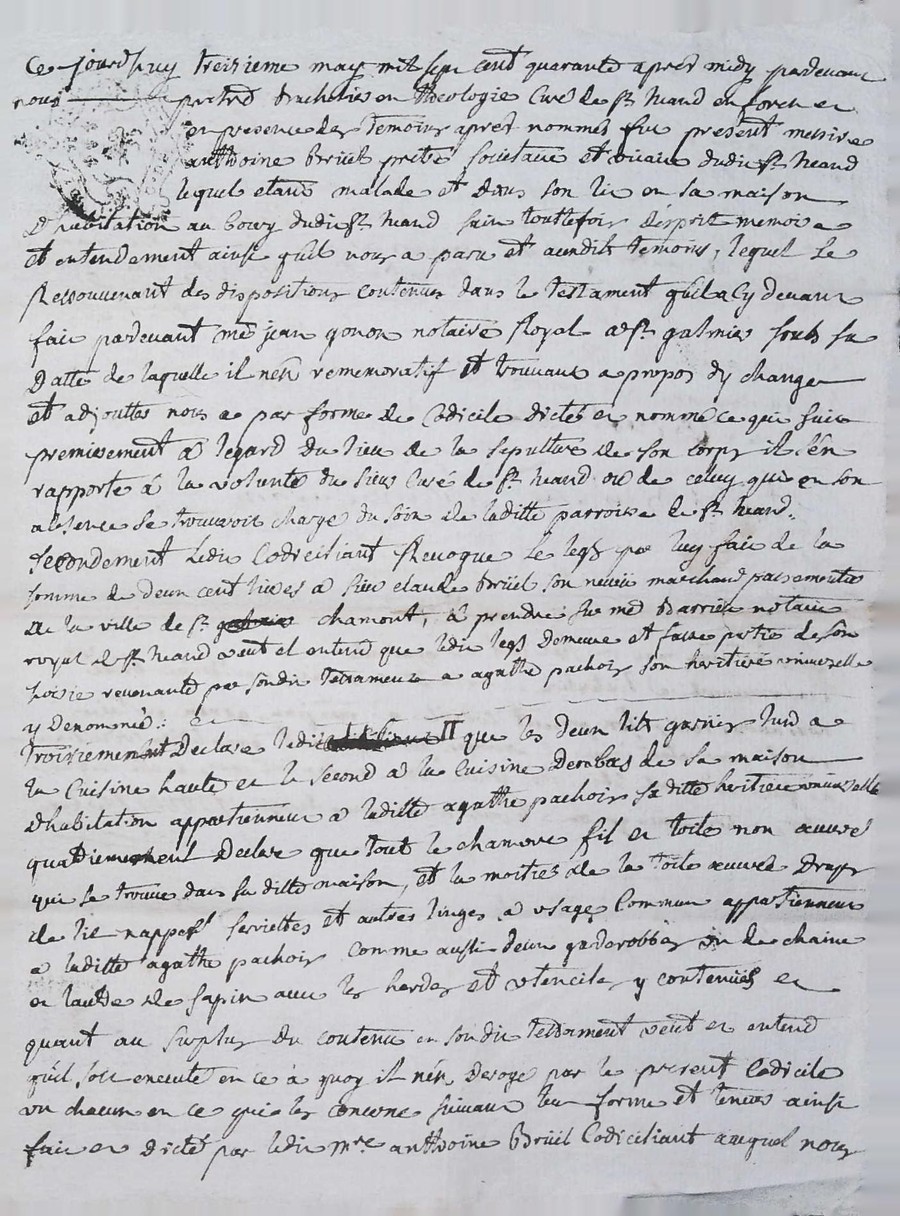 Ce jourdhuy treizieme may mil sept cent quarante apres midy pardevant
nous pretre bachelier en theologie Curé de st heand en forez et
en presence des temoins apres nommés fut present messire
anthoine Brüel pretre societaire et vicaire dudit st heand
lequel etant malade et dans son lit en sa maison
d'habitation au bourg dudit st heand sain touttefois d'esprit memoire
et entendement ainsi quil nous a paru et auxdits temoins, lequel se
ressouvenant des dispositions contenues dans le testament quil a cy devant
fait pardevant me jean gonon notaire Royal a st galmier soub sa
datte de laquelle il nest rememoratif et trouvant a propos dy changer
et adjoutter nous a par forme de Codicile dicté et nommé ce qui suit
premierement a legard du lieu de la sepulture de son corps il s'en
rapporte a la volonté du sieur Curé de st heand ou de celuy qui en son
absence se trouvoit chargé du soin de laditte parroisse de st heand.
secondement ledit Codiciliant Revoque le legs par luy fait de la
somme de deux cent livres a sieur claude Brüel son neveü marchand passementier
de la ville de st chamont, a prendre sur me Barrier notaire
royal de st heand veut et entend que ledit legs demeure et fasse partie de son
hoirie revenante par sondit testament a agathe pachoir son heritiere universelle
y denommée. et
troisiemement declare ledit que les deux lits garnis lund a
la Cuisine haute et le second a la Cuisine den bas de sa maison
d'habitation appartiennent a laditte agathe pachoir sa ditte heritiere universelle
quatriemement declare que tout le chanvre fil et toile non oeuvré
qui se trouve dans sa ditte maison, et la moitier de la toile oeuvrée draps
de lit nappes serviettes et autres linges a usage Commun appartiennent
a laditte agathe pachoir comme aussi deux garderobbes un de chaine
et lautre de sapin avec les hardes et utencile y contenües et
quant au surplus du contenu en son dit testament veut et entend
quil soit executé en ce a quoy il n'en deroge par le present Codicile
un chacun en ce qui les concerne suivant leur forme et teneur ainsi
fait et dicté par ledit mre anthoine Brüel Codiciliant auquel nous